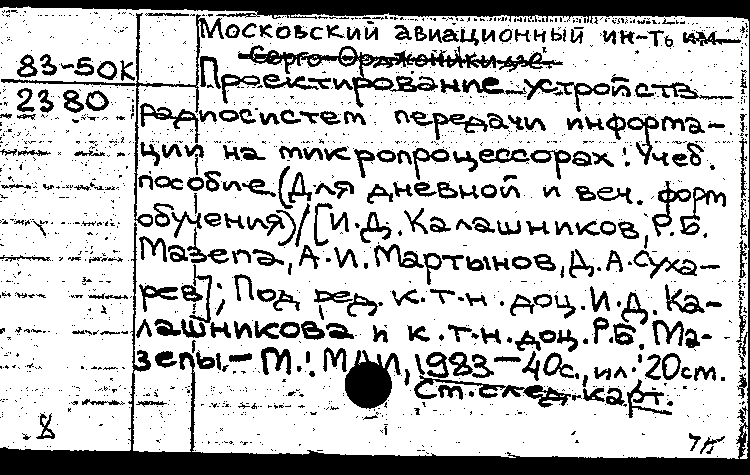 Московский авиационный ин-т. им.
Серго Орджоникидзе.
83-50К
2380
Проектирование устройств
радиосистем передачи информа-
ции на микропроцессорах: Учеб.
пособие. (Для дневной и веч. форм
обучения)/[И.Д. Калашников, Р.Б.
Мазепа, А.И. Мартынов, Д.А. Суха-
рев]; Под ред. к.т.н. доц. И.Д. Ка-
лашникова и к.т.н. доц. Р.Б. Ма-
зепы. - М.: МАИ, 1983 - 40с., ил. 20см.
См. след. карт.